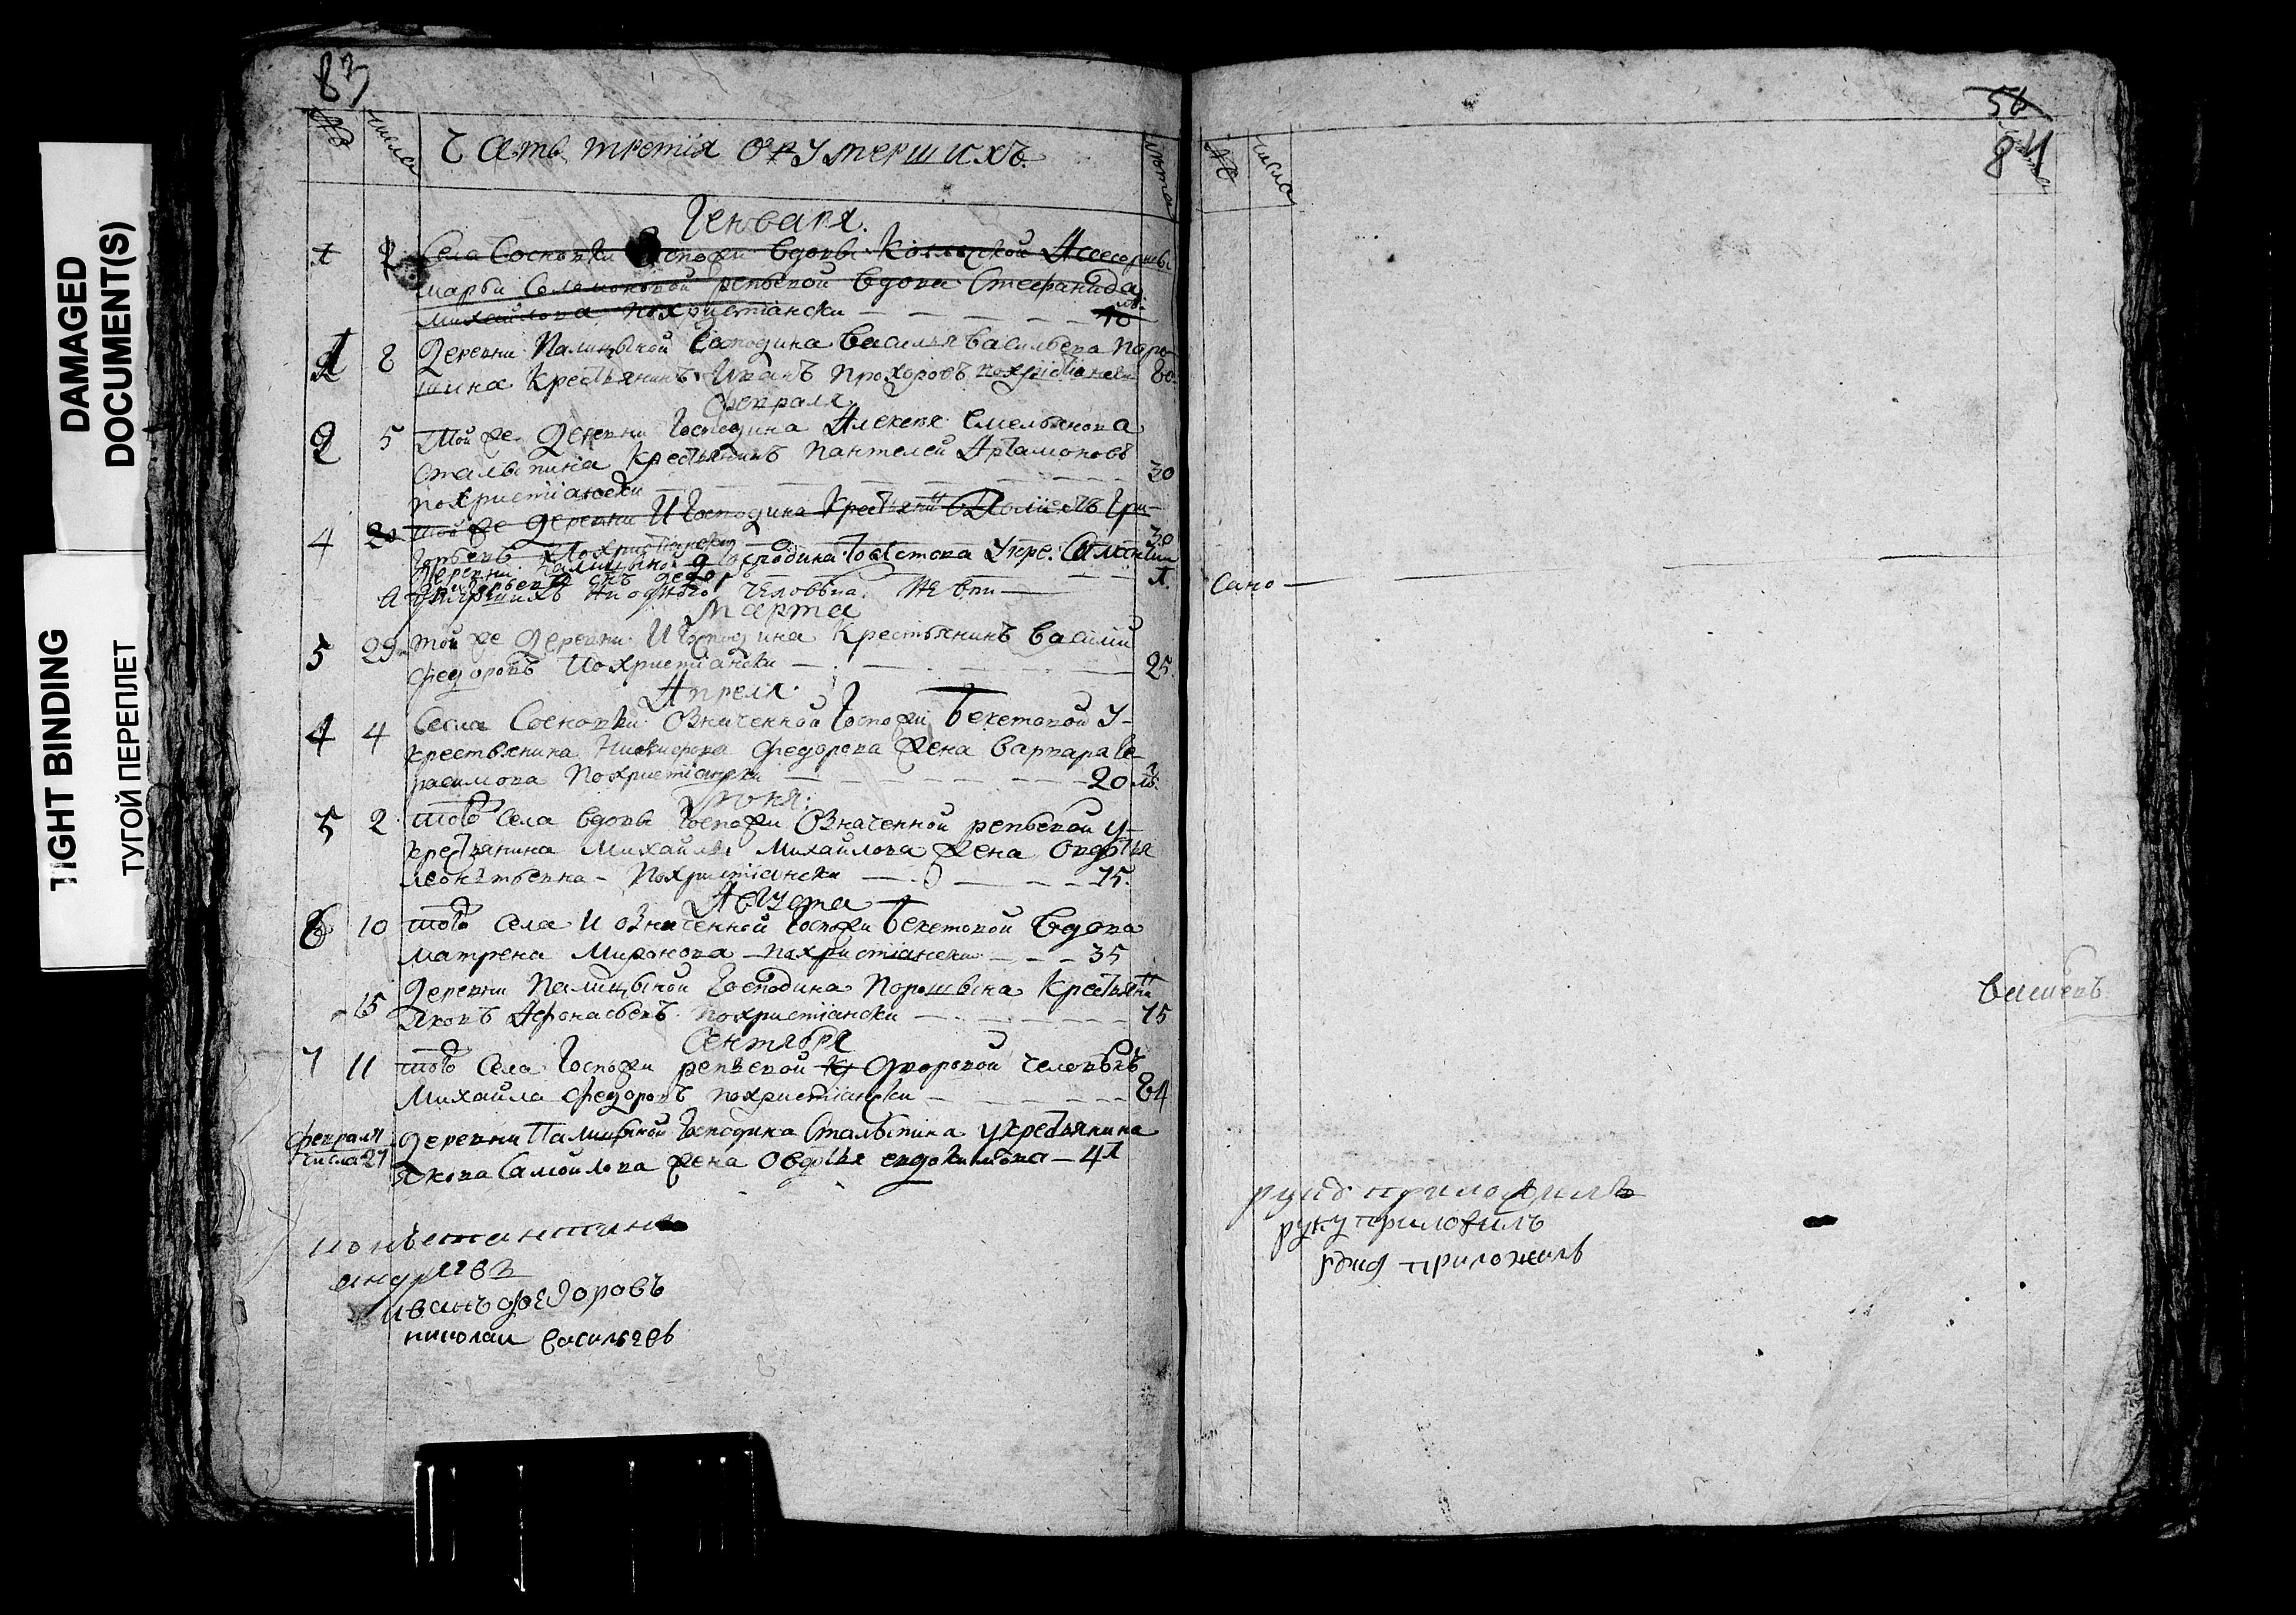 DAMAGED
DOCUMENT(S)
TIGHT BINDING
ТУГОЙ ПЕРЕПЛЕТ
83
№ числа Часть третія о умершихъ. лѣта
Генваря.
1 2 Села Сосновки Госпожи вдовы Коллежской Ассесорши
марьи репьевой вдова Стефанида
Михайлова похристіански
8 Деревни Палицыной Господина василья васильева Поро-
шина Крестьянинъ Иванъ Прохоровъ похристіански 80
февраля
2 5 Той же деревни Господина Алексея Емельянова
Сталыпина Крестьянинъ Пантелей Артамоновъ
похристіански 30
4 20 той же деревни И Господина Крестьянинъ Гри-
горьевъ похристиански 30
деревни Палицыной Господина
а умершихъ ниодного человѣка не
Марта
5 29 той же деревни И Господина Крестьянинъ василій
федоровъ Похристіански 25.
Апреля
4 4 Села Сосновки Означенной Госпожи Бекетовой У-
крестьянина Никифора федорова жена варвара Ге-
расимова Похристіански 20 лѣ.
Июня
5 2 того Села вдовы Госпожи Означенной репьевой у-
крестьянина Михайлы Михайлова жена Овдотья
Леонтьевна - Похристіански 75.
Августа
6 10 того Села И означенной Госпожи Бекетовой вдова
матрена Миронова похристіански 35
15 Деревни Палицыной Господина Порошина Крестьянинъ
Яковъ Афонасьевъ похристіански 75
Сентября
7 11 того Села Госпожи репьевой дворовой человѣкъ
Михайла федоровъ похристіански 64
февраля числа 27 деревни Палицыной Господина Сталыпина у крестьянина
Якова Самойлова жена Овдотья евдокимова - 41
констентинъ
андреевъ
иванъ федоровъ
николаи васильевъ
56
84
№ числа
васильевъ
руку приложилъ
руку приложилъ
руку приложилъ